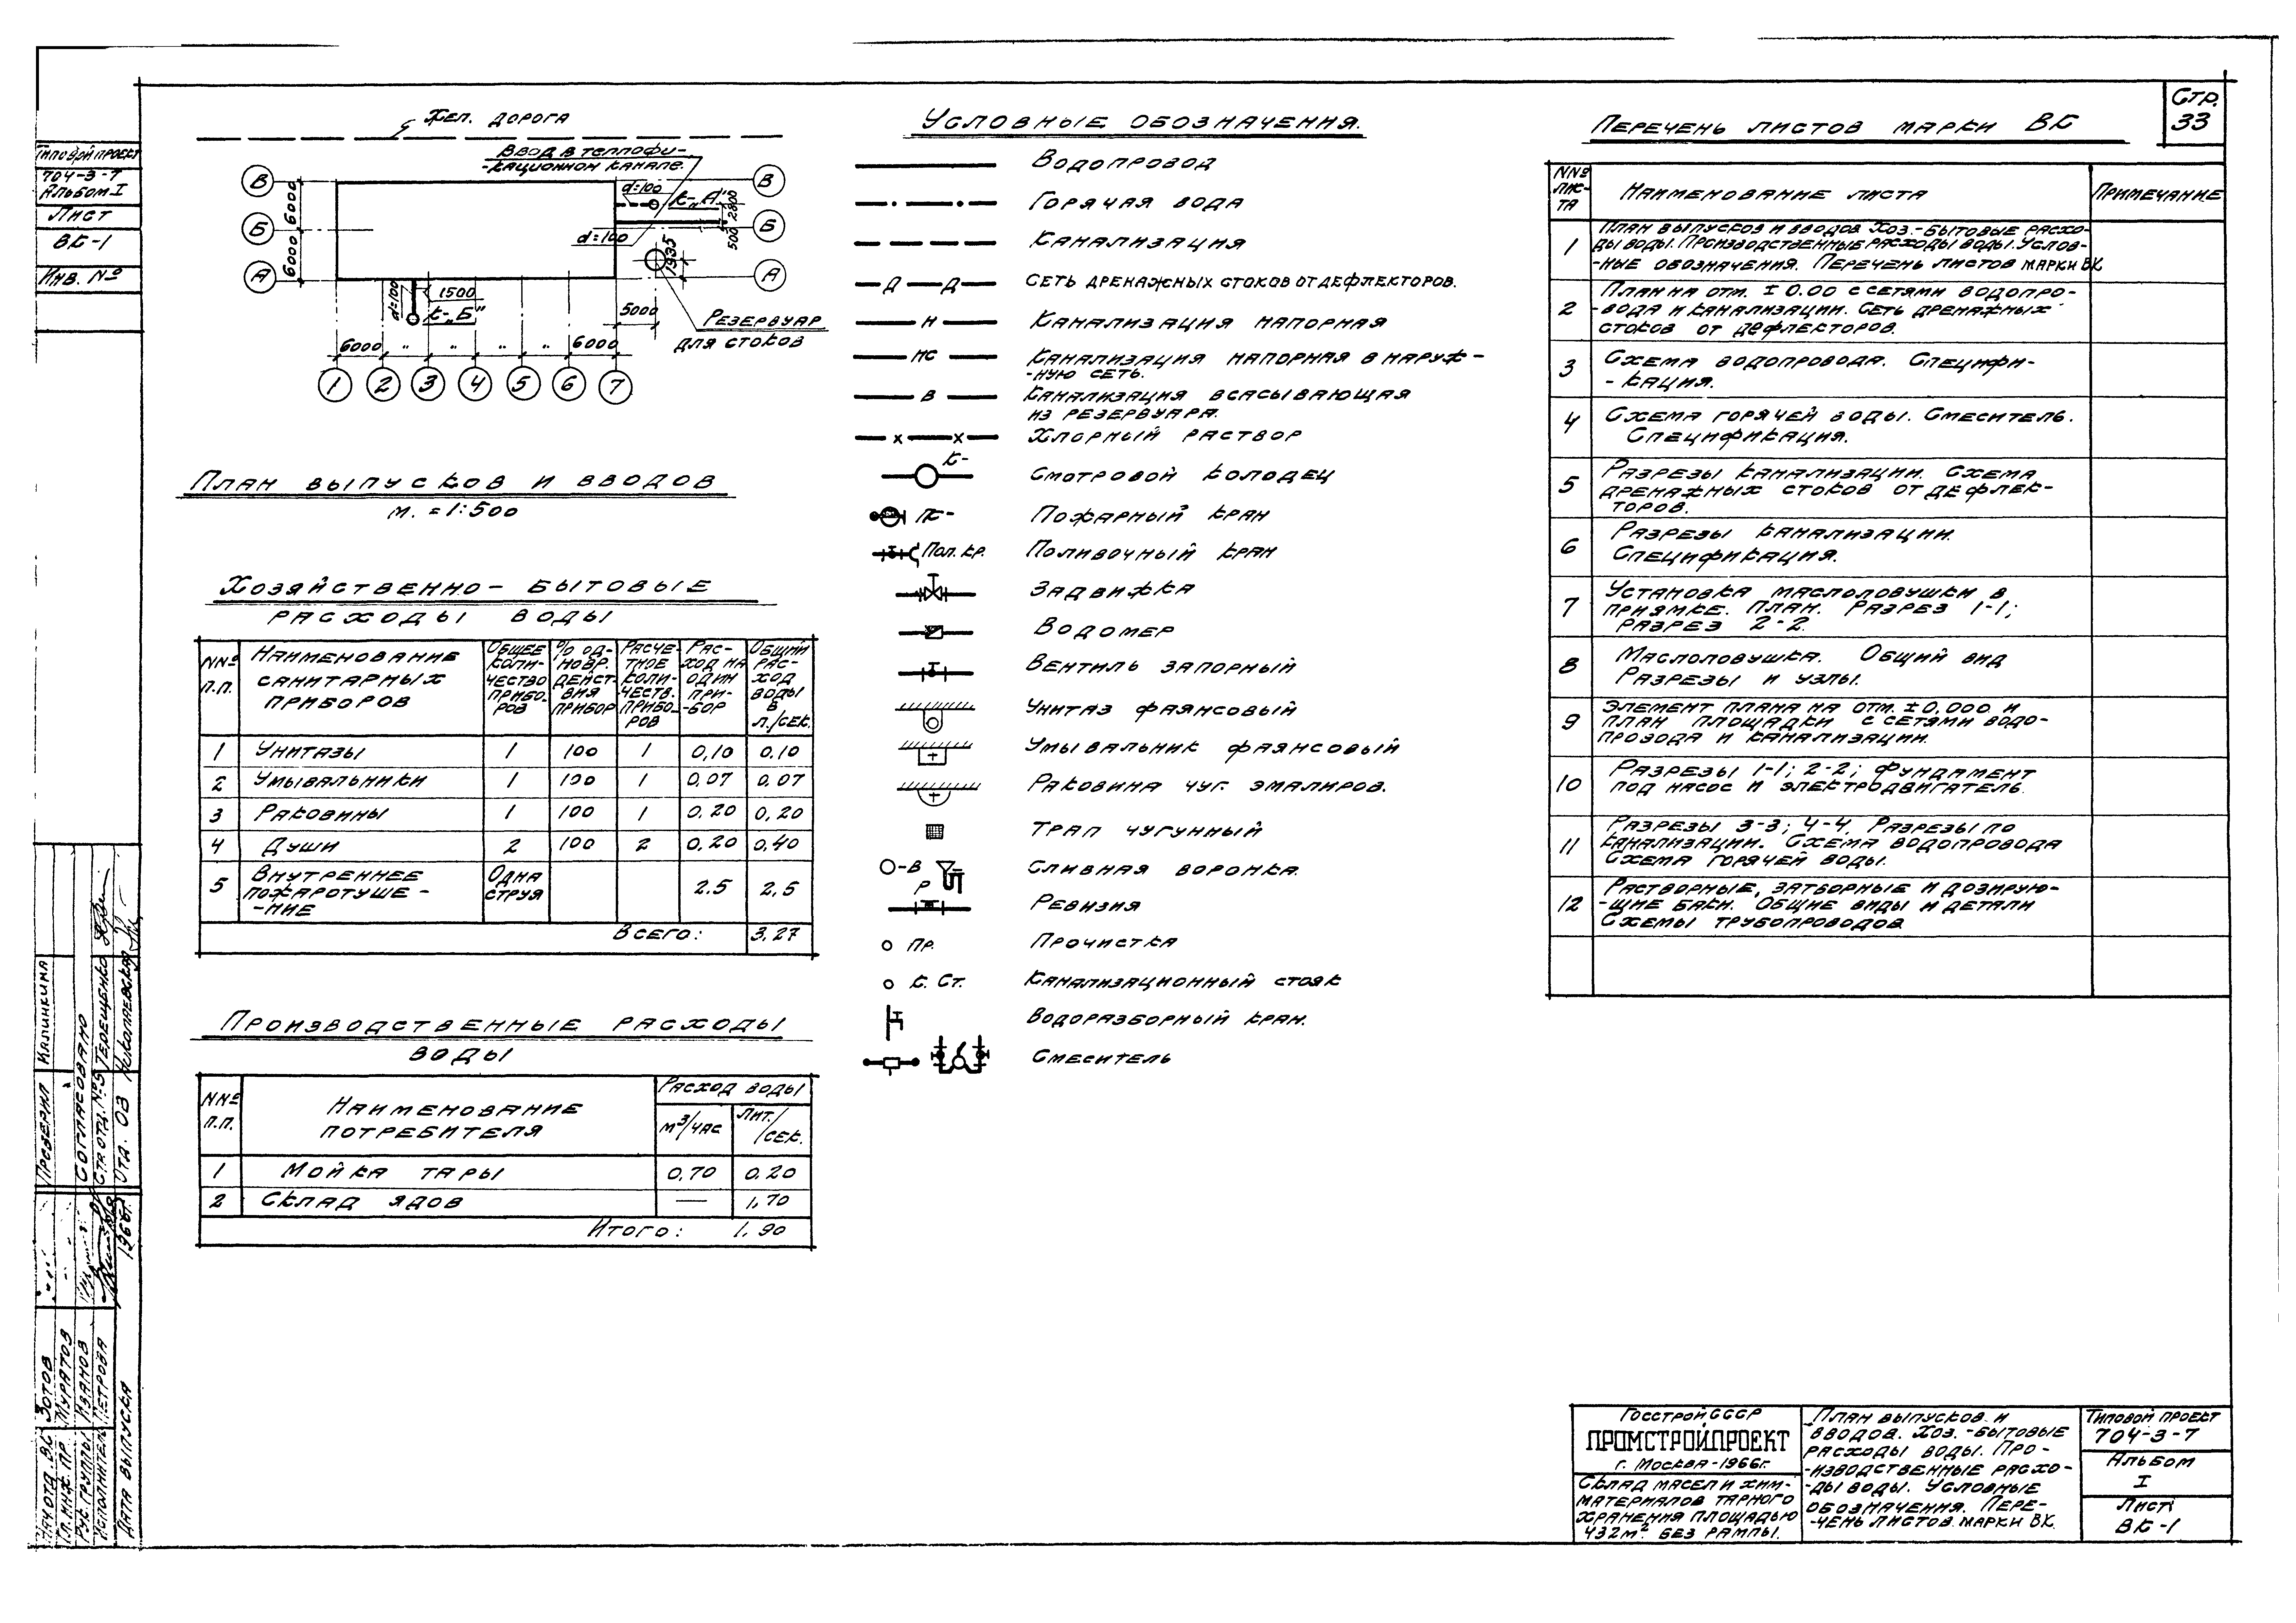 Стр.
33
Типовой проект
704-3-7
Альбом I
Лист
ВК-1
Инв. №
Жел. дорога
Ввод в теплофи-
-кационном канале.
В
Б
А
6000
6000
d=100
К-„А"
2800
500
d=100
1935
В
Б
А
d=100
1500
К-„Б"
5000
Резервуар
для стоков
6000 " " " " 6000
1 2 3 4 5 6 7
План выпусков и вводов
м. = 1:500
Хозяйственно-бытовые
расходы воды
NNº п.п.
Наименование санитарных приборов
Общее коли-чество прибо-ров
% од-новр. дейст-вия прибор
Расче-тное колич-честв. прибо-ров
Рас-ход на один при--бор
Общий рас-ход воды в л./сек.
1 Унитазы 1 100 1 0,10 0,10
2 Умывальники 1 100 1 0,07 0,07
3 Раковины 1 100 1 0,20 0,20
4 Души 2 100 2 0,20 0,40
5 Внутреннее пожаротуше--ние Одна струя 2.5 2,5
Всего: 3,27
Производственные расходы
воды
NNº п.п.
Наименование потребителя
Расход воды
м³/час
Лит./сек.
1 Мойка тары 0,70 0,20
2 Склад ядов — 1,70
Итого: 1,90
Условные обозначения.
Водопровод
Горячая вода
Канализация
Д Д Сеть дренажных стоков от дефлекторов.
Н Канализация напорная
НС Канализация напорная в наруж-
-ную сеть.
В Канализация всасывающая
из резервуара.
х х Хлорный раствор
К- Смотровой колодец
ПК- Пожарный кран
Пол. кр. Поливочный кран
Задвижка
Водомер
Вентиль запорный
Унитаз фаянсовый
Умывальник фаянсовый
Раковина чуг. эмалиров.
Трап чугунный
В Сливная воронка.
Р Ревизия
Пр. Прочистка
К. Ст. Канализационный стояк
Водоразборный кран.
Смеситель
Перечень листов марки ВК
NNº лис-та
Наименование листа
Примечание
1 План выпусков и вводов Хоз.-бытовые расхо-
ды воды. Производственные расходы воды. Услов-
-ные обозначения. Перечень листов марки ВК
2 План на отм. ±0.00 с сетями водопро-
-вода и канализации. Сеть дренажных
стоков от дефлекторов.
3 Схема водопровода. Специфи-
-кация.
4 Схема горячей воды. Смеситель.
Спецификация.
5 Разрезы канализации. Схема
дренажных стоков от дефлек-
торов.
6 Разрезы канализации.
Спецификация.
7 Установка маслоловушки в
приямке. План. Разрез 1-1;
Разрез 2-2.
8 Маслоловушка. Общий вид
Разрезы и узлы.
9 Элемент плана на отм. ±0,000 и
план площадки с сетями водо-
провода и канализации.
10 Разрезы 1-1; 2-2; фундамент
под насос и электродвигатель.
11 Разрезы 3-3; 4-4. Разрезы по
канализации. Схема водопровода
Схема горячей воды.
12 Растворные, затворные и дозирую-
-щие баки. Общие виды и детали
Схемы трубопроводов.
Проверил Калинкина
Согласовано
Стр. отд. №3 Терещенко
Отд. ОВ Николаевская
Нач. отд. ВК Зотов
Гл. инж. пр. Муратов
Рук. группы Иванов
Исполнитель Петрова
Дата выпуска 1966г.
Госстрой СССР
ПРОМСТРОЙПРОЕКТ
г. Москва-1966г.
Склад масел и хим-
материалов тарного
хранения площадью
432м² без рампы.
План выпусков и
вводов. Хоз.-бытовые
расходы воды. Про-
-изводственные расхо-
-ды воды. Условные
обозначения. Пере-
-чень листов марки ВК.
Типовой проект
704-3-7
Альбом
I
Лист
ВК-1